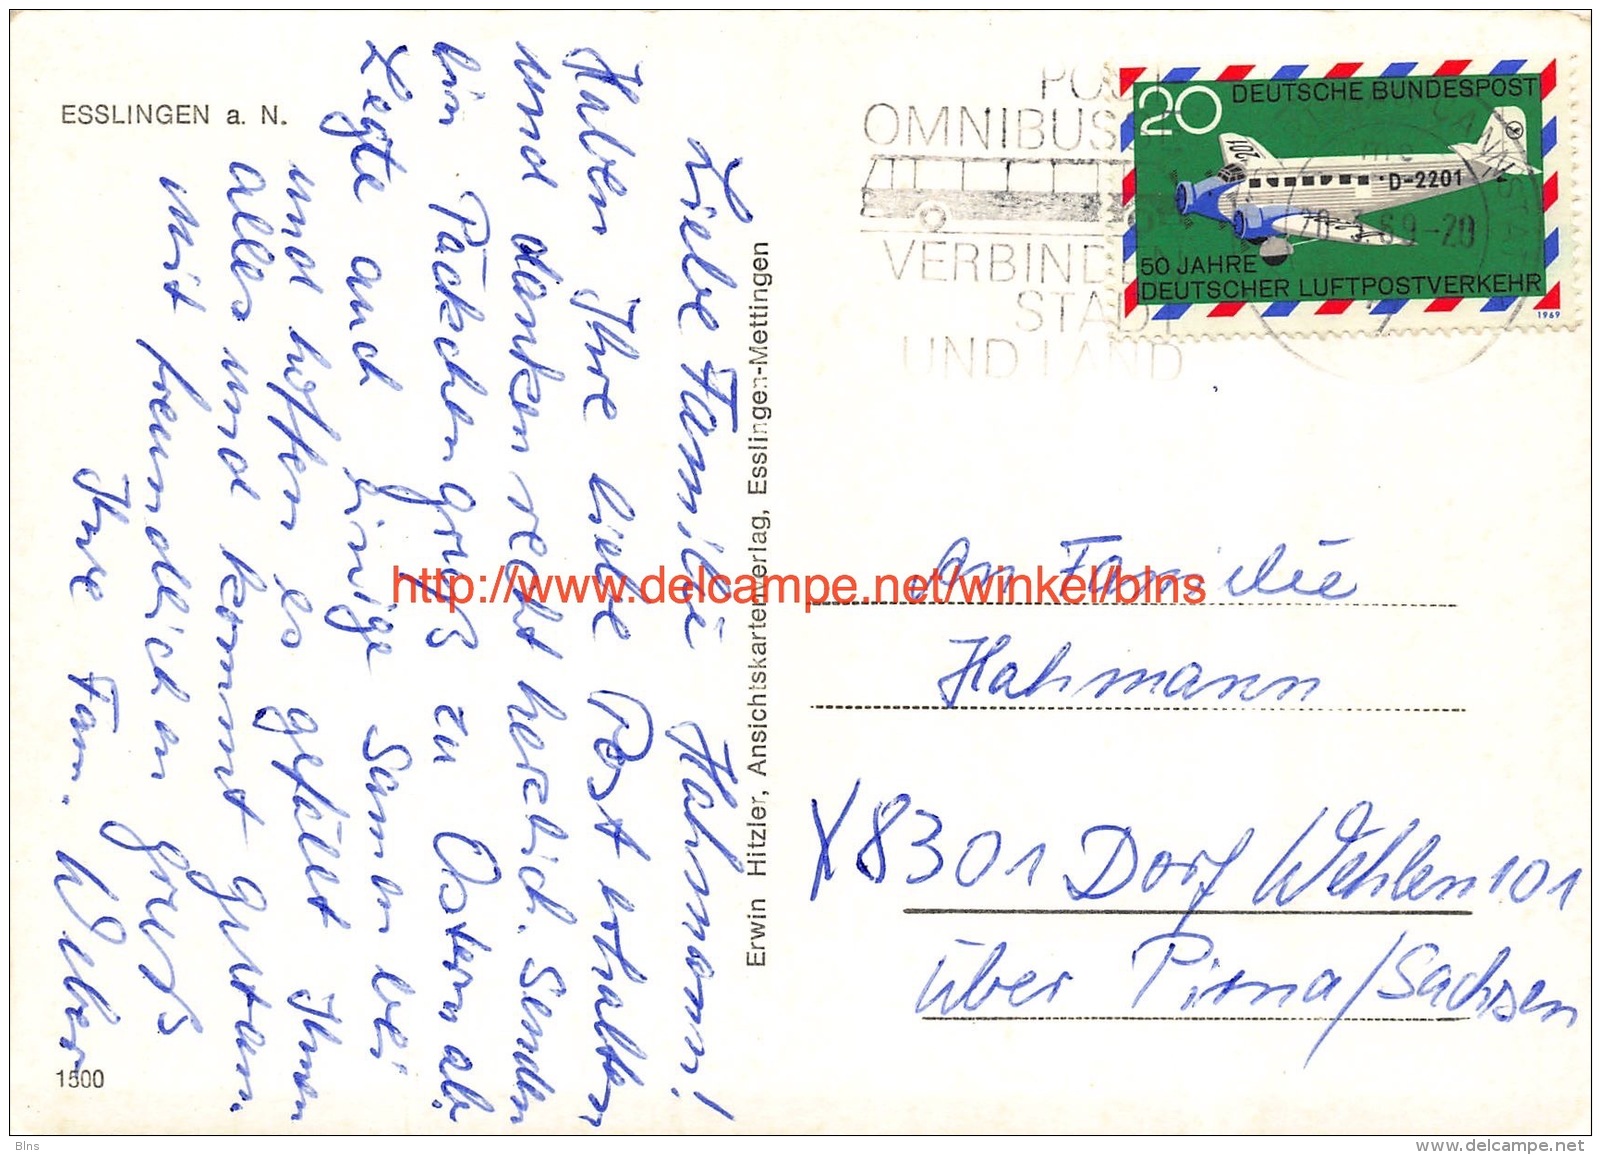 ESSLINGEN a. N.
Liebe Familie Hahmann!
Haben Ihre liebe Post erhalten
und danken recht herzlich. Senden
ein Päckchen gruß zu Ostern ab.
Legte auch einige Samen bei
und hoffen es gefällt Ihnen
alles und kommt gut an.
Mit freundlichen Gruß
Ihre Fam. Weber
1500
Erwin Hitzler, Ansichtskartenverlag, Esslingen-Mettingen
POST
OMNIBUSSE
VERBINDEN
STADT
UND LAND
20.3.69-20
20 DEUTSCHE BUNDESPOST
D-2201
50 JAHRE
DEUTSCHER LUFTPOSTVERKEHR
1969
An Familie
Hahmann
X8301 Dorf Wehlen 101
über Pirna/Sachsen
http://www.delcampe.net/winkel/blns
Blns
www.delcampe.net